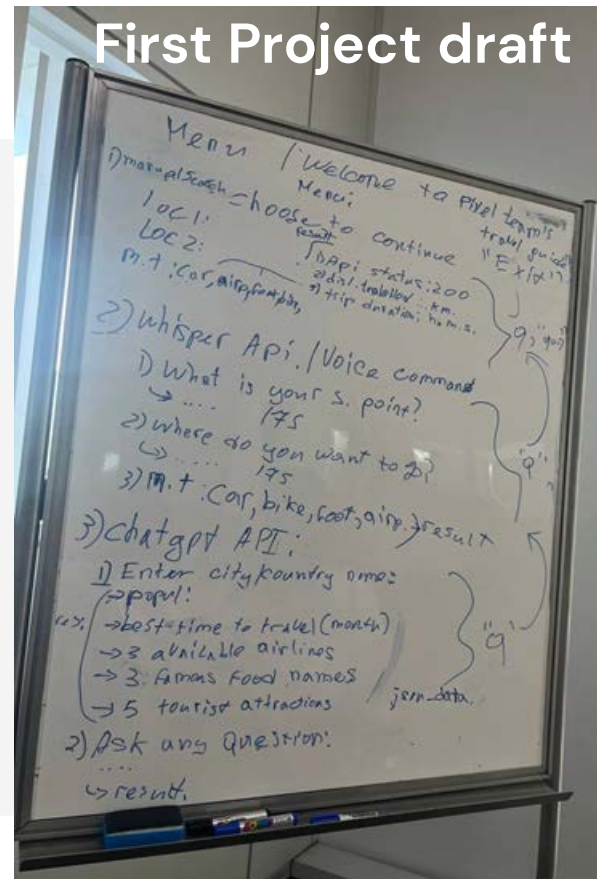 First Project draft
Menu / Welcome to Pixel team's
travel guide
Menu:
"Exit"
1) manual search choose to continue
result
Loc 1:
1) Api status: 200
Loc 2:
2) dist. travelled .. km.
3) trip duration: h. m. s.
m.t : Car, airp, foot, bike,
q,
2) Whisper Api. / Voice command
1) What is your s. point?
↳ .... 17s
2) where do you want to go?
↳ ..... 17s
"q"
3) m.t : Car, bike, foot, airp. } result
3) Chatgpt API:
1) Enter city/country name:
→ popul:
→ best time to travel (month)
→ 3 available airlines
→ 3 famous food names
→ 5 tourist attractions
"q"
json_data.
2) Ask any Question:
....
↳ result.